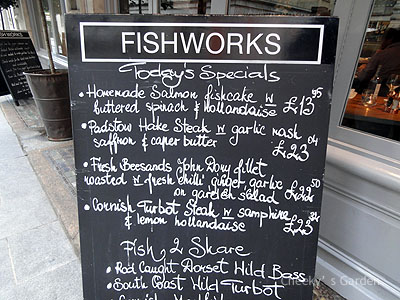 FISHWORKS
Today's Specials
• Homemade Salmon fishcake w
buttered spinach & hollandaise £13.95
• Padstow Hake Steak w garlic mash
saffron & caper butter £23
• Fresh Beesands John Dory fillet
roasted w fresh chilli ginger, garlic
on garden salad £22.50
• Cornish Turbot Steak w samphire
& lemon hollandaise £23
Fish 2 Share
• Rod Caught Dorset Wild Bass
• South Coast Wild Turbot
Cheeky's Garden